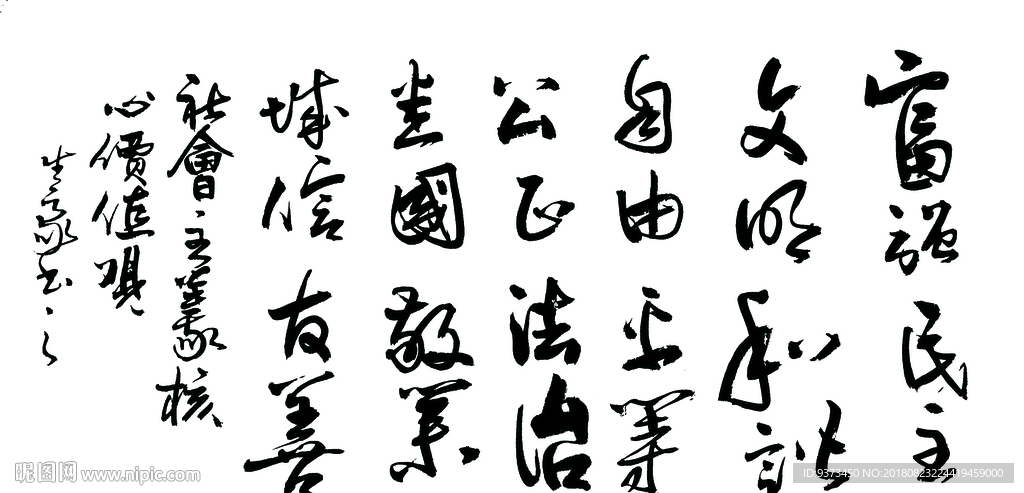 富強民主
文明和諧
自由平等
公正法治
愛國敬業
誠信友善
社會主義核
心價值觀
昵图网 www.nipic.com
ID:9373450 NO:20180823224419459000